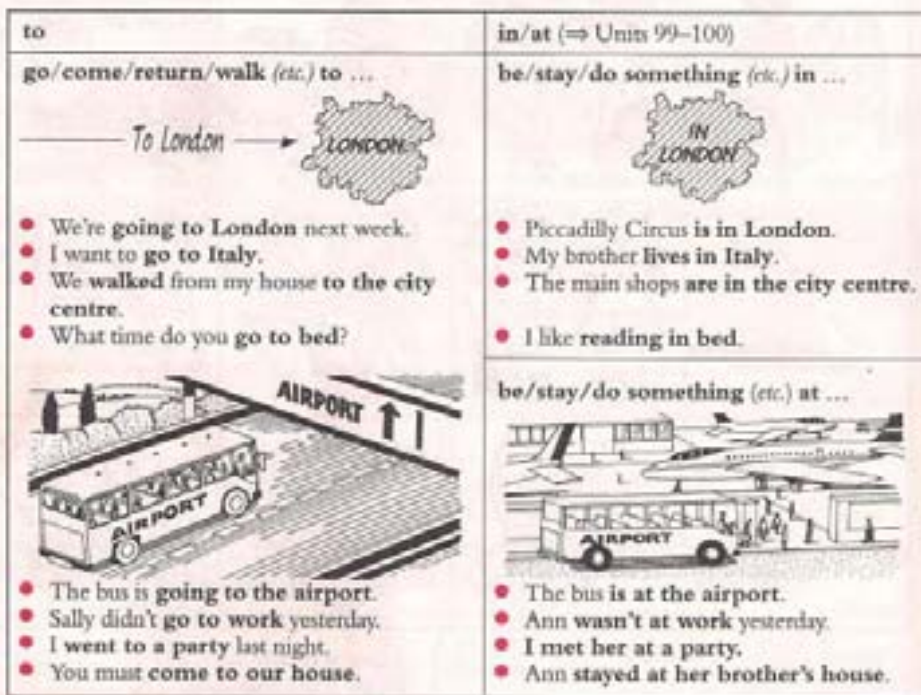 to
go/come/return/walk (etc.) to ...
To London
LONDON
We're going to London next week.
I want to go to Italy.
We walked from my house to the city
centre.
What time do you go to bed?
AIRPORT
AIRPORT
The bus is going to the airport.
Sally didn't go to work yesterday.
I went to a party last night.
You must come to our house.
in/at (⇒ Units 99–100)
be/stay/do something (etc.) in ...
IN
LONDON
Piccadilly Circus is in London.
My brother lives in Italy.
The main shops are in the city centre.
I like reading in bed.
be/stay/do something (etc.) at ...
AIRPORT
The bus is at the airport.
Ann wasn't at work yesterday.
I met her at a party.
Ann stayed at her brother's house.